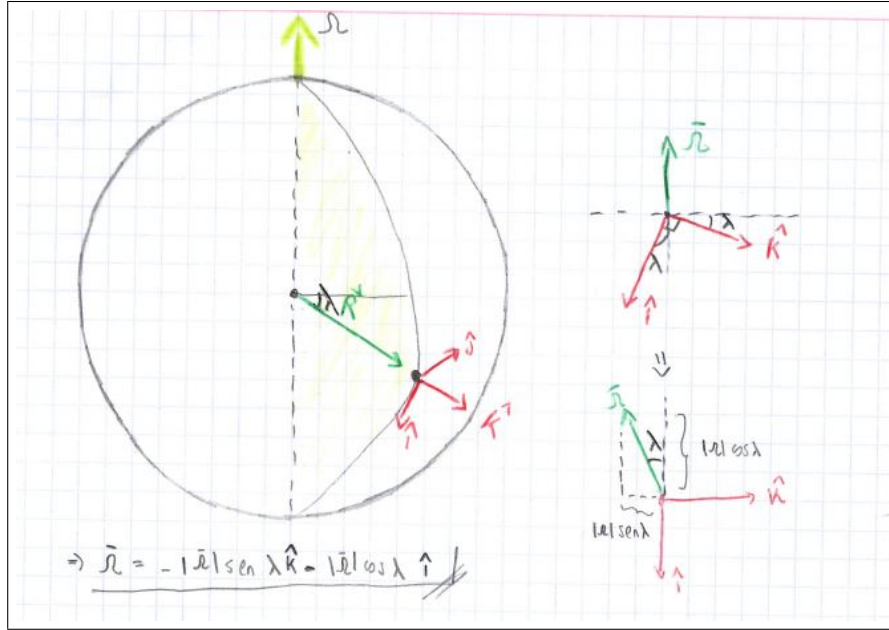 Ω
λ R⃗
ĵ
î
k̂
Ω̄
λ
k̂
λ
î
⇓
Ω̄
λ
|Ω| cos λ
k̂
|Ω| sen λ
î
⇒ Ω̄ = - |Ω̄| sen λ k̂ - |Ω̄| cos λ î